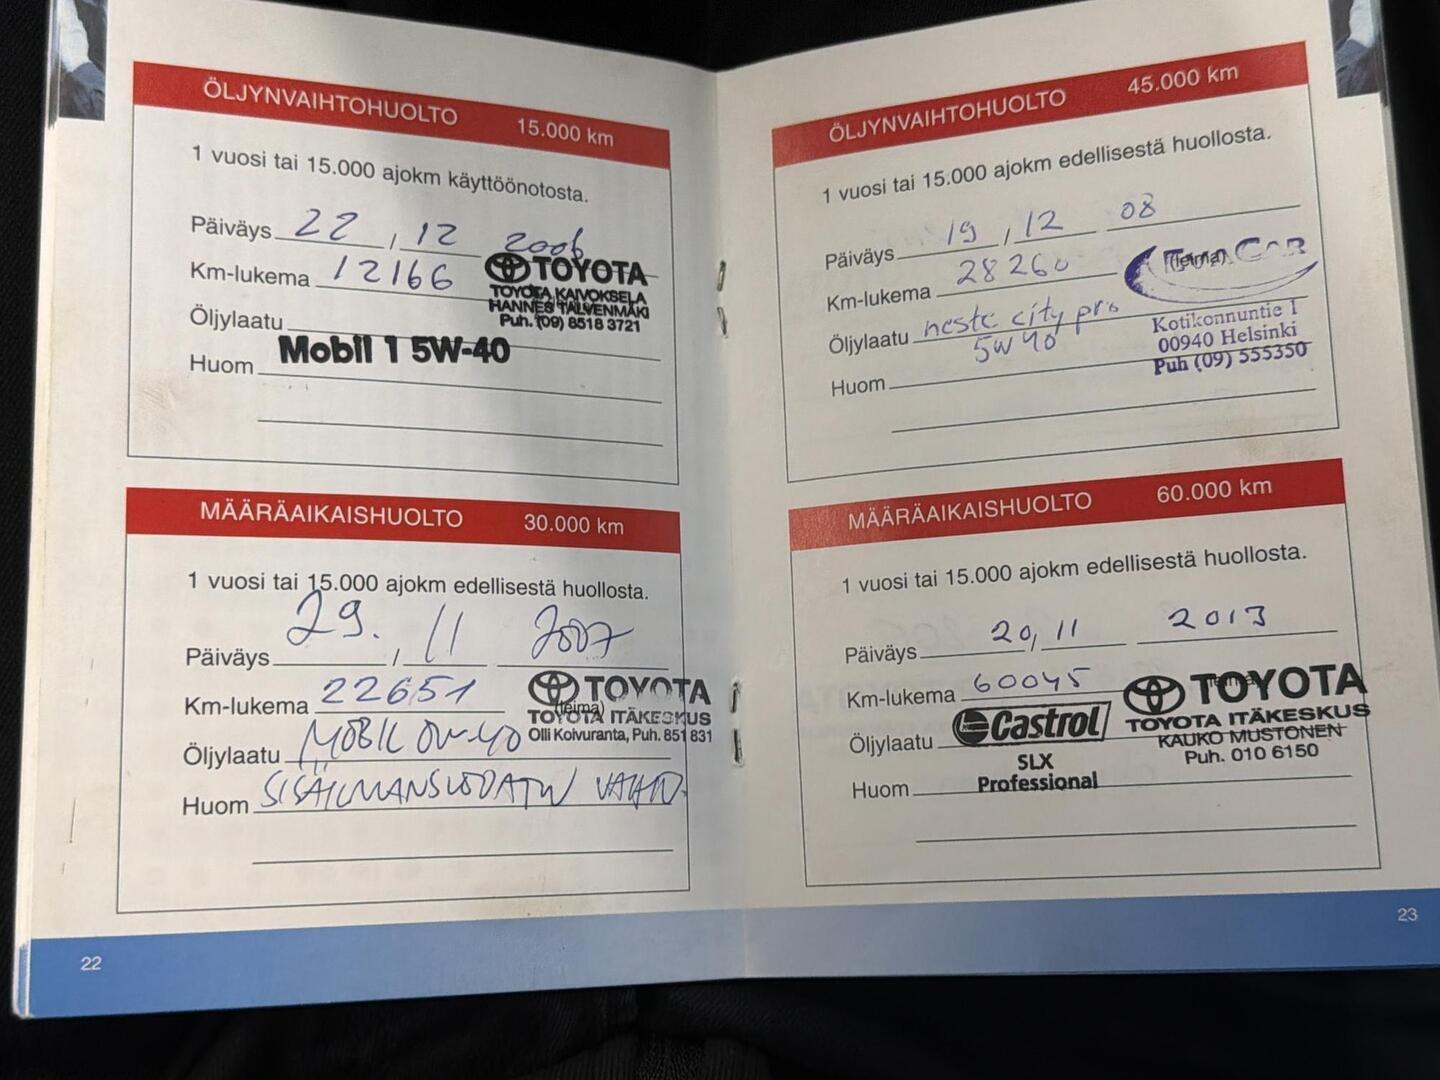 ÖLJYNVAIHTOHUOLTO 15.000 km
1 vuosi tai 15.000 ajokm käyttöönotosta.
Päiväys 22 , 12 2006
Km-lukema 12166
TOYOTA
TOYOTA KAIVOKSELA
HANNES TALVENMÄKI
Puh. (09) 8518 3721
Öljylaatu
Mobil 1 5W-40
Huom
MÄÄRÄAIKAISHUOLTO 30.000 km
1 vuosi tai 15.000 ajokm edellisestä huollosta.
Päiväys 29. , 11 2007
Km-lukema 22651
TOYOTA
(leima)
TOYOTA ITÄKESKUS
Olli Koivuranta, Puh. 851 831
Öljylaatu MOBIL 0W-40
Huom SISÄILMANSUODATIN
22
ÖLJYNVAIHTOHUOLTO 45.000 km
1 vuosi tai 15.000 ajokm edellisestä huollosta.
Päiväys 19 , 12 08
Km-lukema 28260
(leima)
Öljylaatu neste city pro
5W40
Kotikonnuntie 1
00940 Helsinki
Puh (09) 555350
Huom
MÄÄRÄAIKAISHUOLTO 60.000 km
1 vuosi tai 15.000 ajokm edellisestä huollosta.
Päiväys 20 , 11 2013
Km-lukema 60045
TOYOTA
(leima)
TOYOTA ITÄKESKUS
KAUKO MUSTONEN
Puh. 010 6150
Öljylaatu Castrol
SLX
Professional
Huom
23